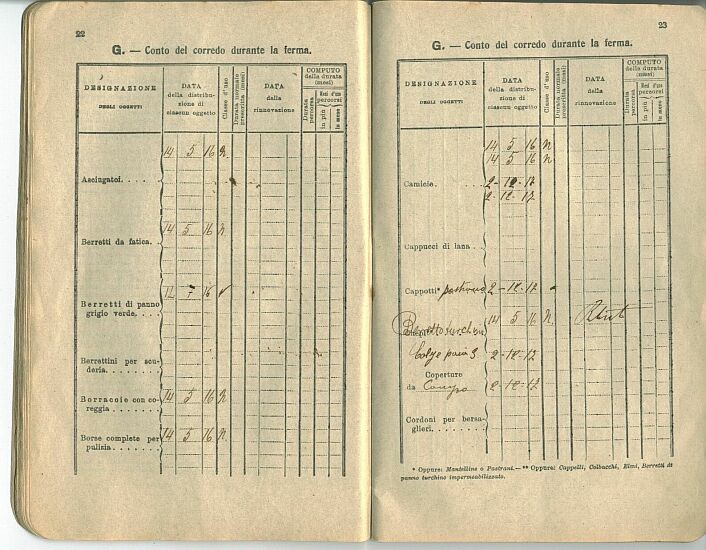 22
G. — Conto del corredo durante la ferma.
DESIGNAZIONE
DEGLI OGGETTI
DATA
della distribu-
zione di
ciascun oggetto
Classe d'uso
Durata normale
prescritta (mesi)
DATA
della
rinnovazione
COMPUTO
della durata
(mesi)
Durata
percorsa
Mesi d'uso
percorsi
in più
in meno
14 5 16 N
Asciugatoi. . . .
14 5 16 N.
Berretti da fatica.
12 7 16
Berretti di panno
grigio verde. . .
Berrettini per scu-
deria. . . . . . .
Borraccie con co-
reggia . . . . . .
14 5 16 N
Borse complete per
pulizia . . . . . .
14 5 16 N.
23
G. — Conto del corredo durante la ferma.
DESIGNAZIONE
DEGLI OGGETTI
DATA
della distribu-
zione di
ciascun oggetto
Classe d'uso
Durata normale
prescritta (mesi)
DATA
della
rinnovazione
COMPUTO
della durata
(mesi)
Durata
percorsa
Mesi d'uso
percorsi
in più
in meno
14 5 16 N
14 5 16 N
Camicie. . . . .
2-12-17
2-12-17
Cappucci di lana . .
Cappotti*
2-12-17
14 5 16 N.
Calze paia 3
2-12-17
Coperture
da Campo
2-12-17
Cordoni per bersa-
glieri. . . . . .
* Oppure: Mantelline o Pastrani. — ** Oppure: Cappelli, Colbacchi, Elmi, Berretti di
panno turchino impermeabilizzato.